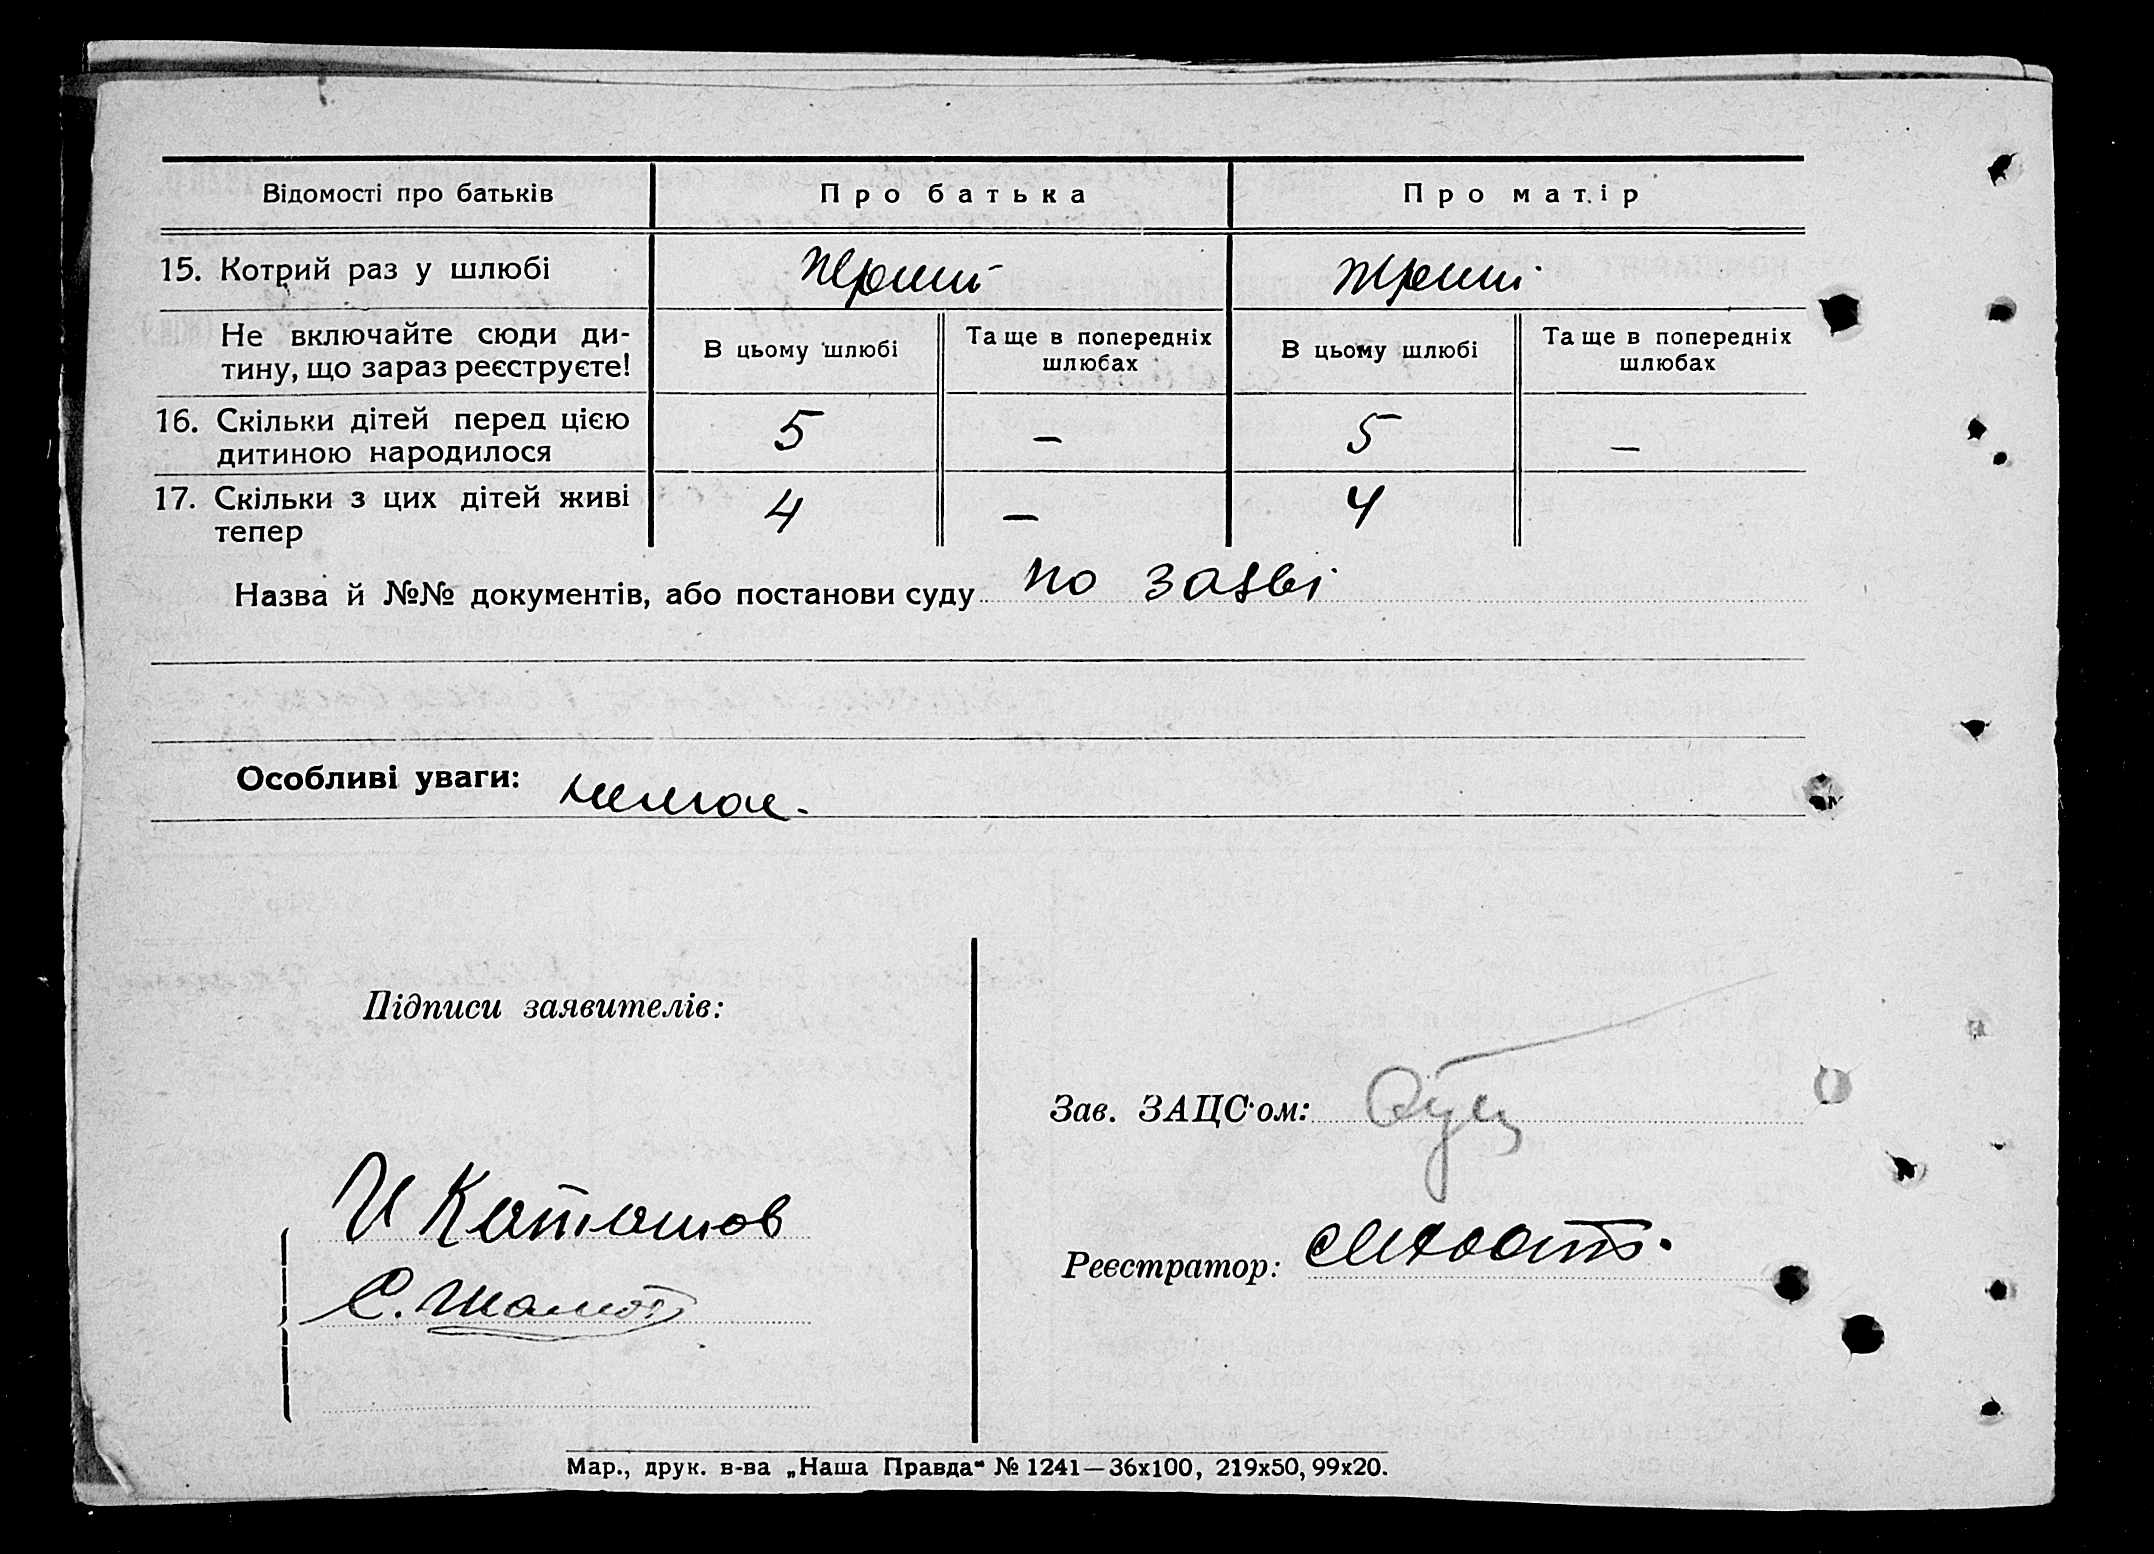 Відомості про батьків
Про батька
Про матір
15. Котрий раз у шлюбі
Перший
Перший
Не включайте сюди ди-
тину, що зараз реєструєте!
В цьому шлюбі
Та ще в попередніх
шлюбах
В цьому шлюбі
Та ще в попередніх
шлюбах
16. Скільки дітей перед цією
дитиною народилося
5
—
5
—
17. Скільки з цих дітей живі
тепер
4
—
4
Назва й №№ документів, або постанови суду по заяві
Особливі уваги: немає.
Підписи заявителів:
Зав. ЗАЦС'ом:
И
С.
Реєстратор:
Мар., друк. в-ва „Наша Правда“ № 1241—36х100, 219х50, 99х20.